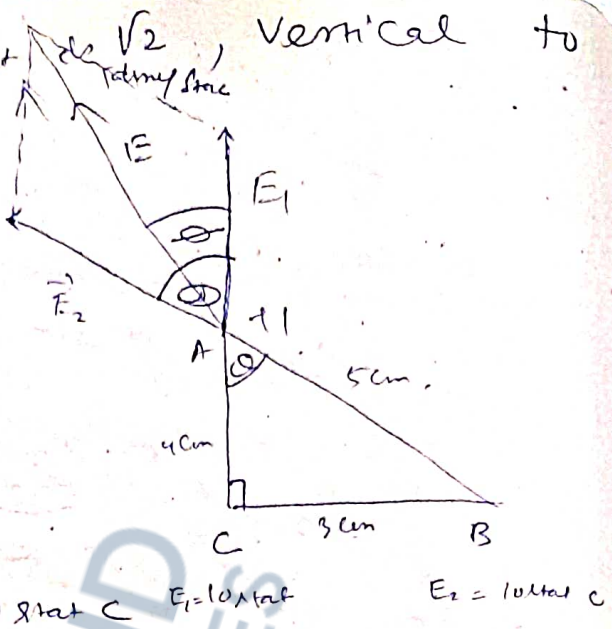 √2, Vertical to
E
E₁
Φ
E⃗₂
Θ
+1
A
θ
5cm.
4cm
3cm
C
B
Stat C E₁=10stat E₂ = 10stat c